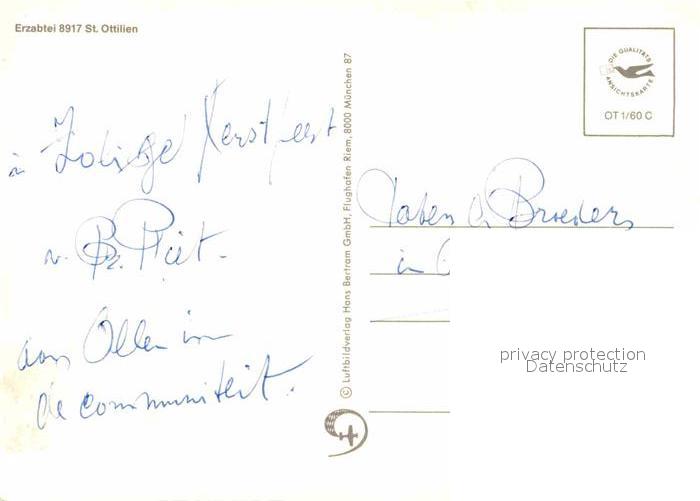 Erzabtei 8917 St. Ottilien
DIE QUALITÄTS
ANSICHTSKARTE
OT 1/60 C
Zalige Kerstfeest
v. Br. Piet.
aan Allen in
de communiteit.
© Luftbildverlag Hans Bertram GmbH, Flughafen Riem, 8000 München 87
Paters & Broeders
in
privacy protection
Datenschutz